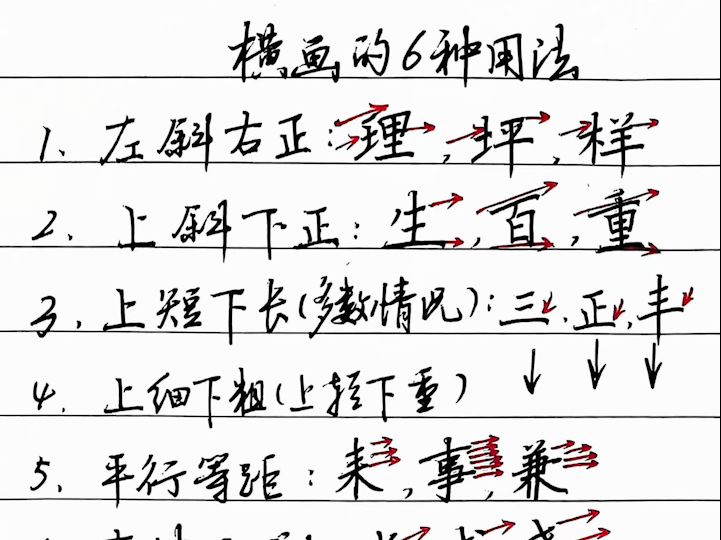 横画的6种用法
1、左斜右正：理，坪，样
2、上斜下正：生，百，重
3、上短下长(多数情况)：三、正、丰
4、上细下粗(上轻下重)
5、平行等距：耒，事，兼